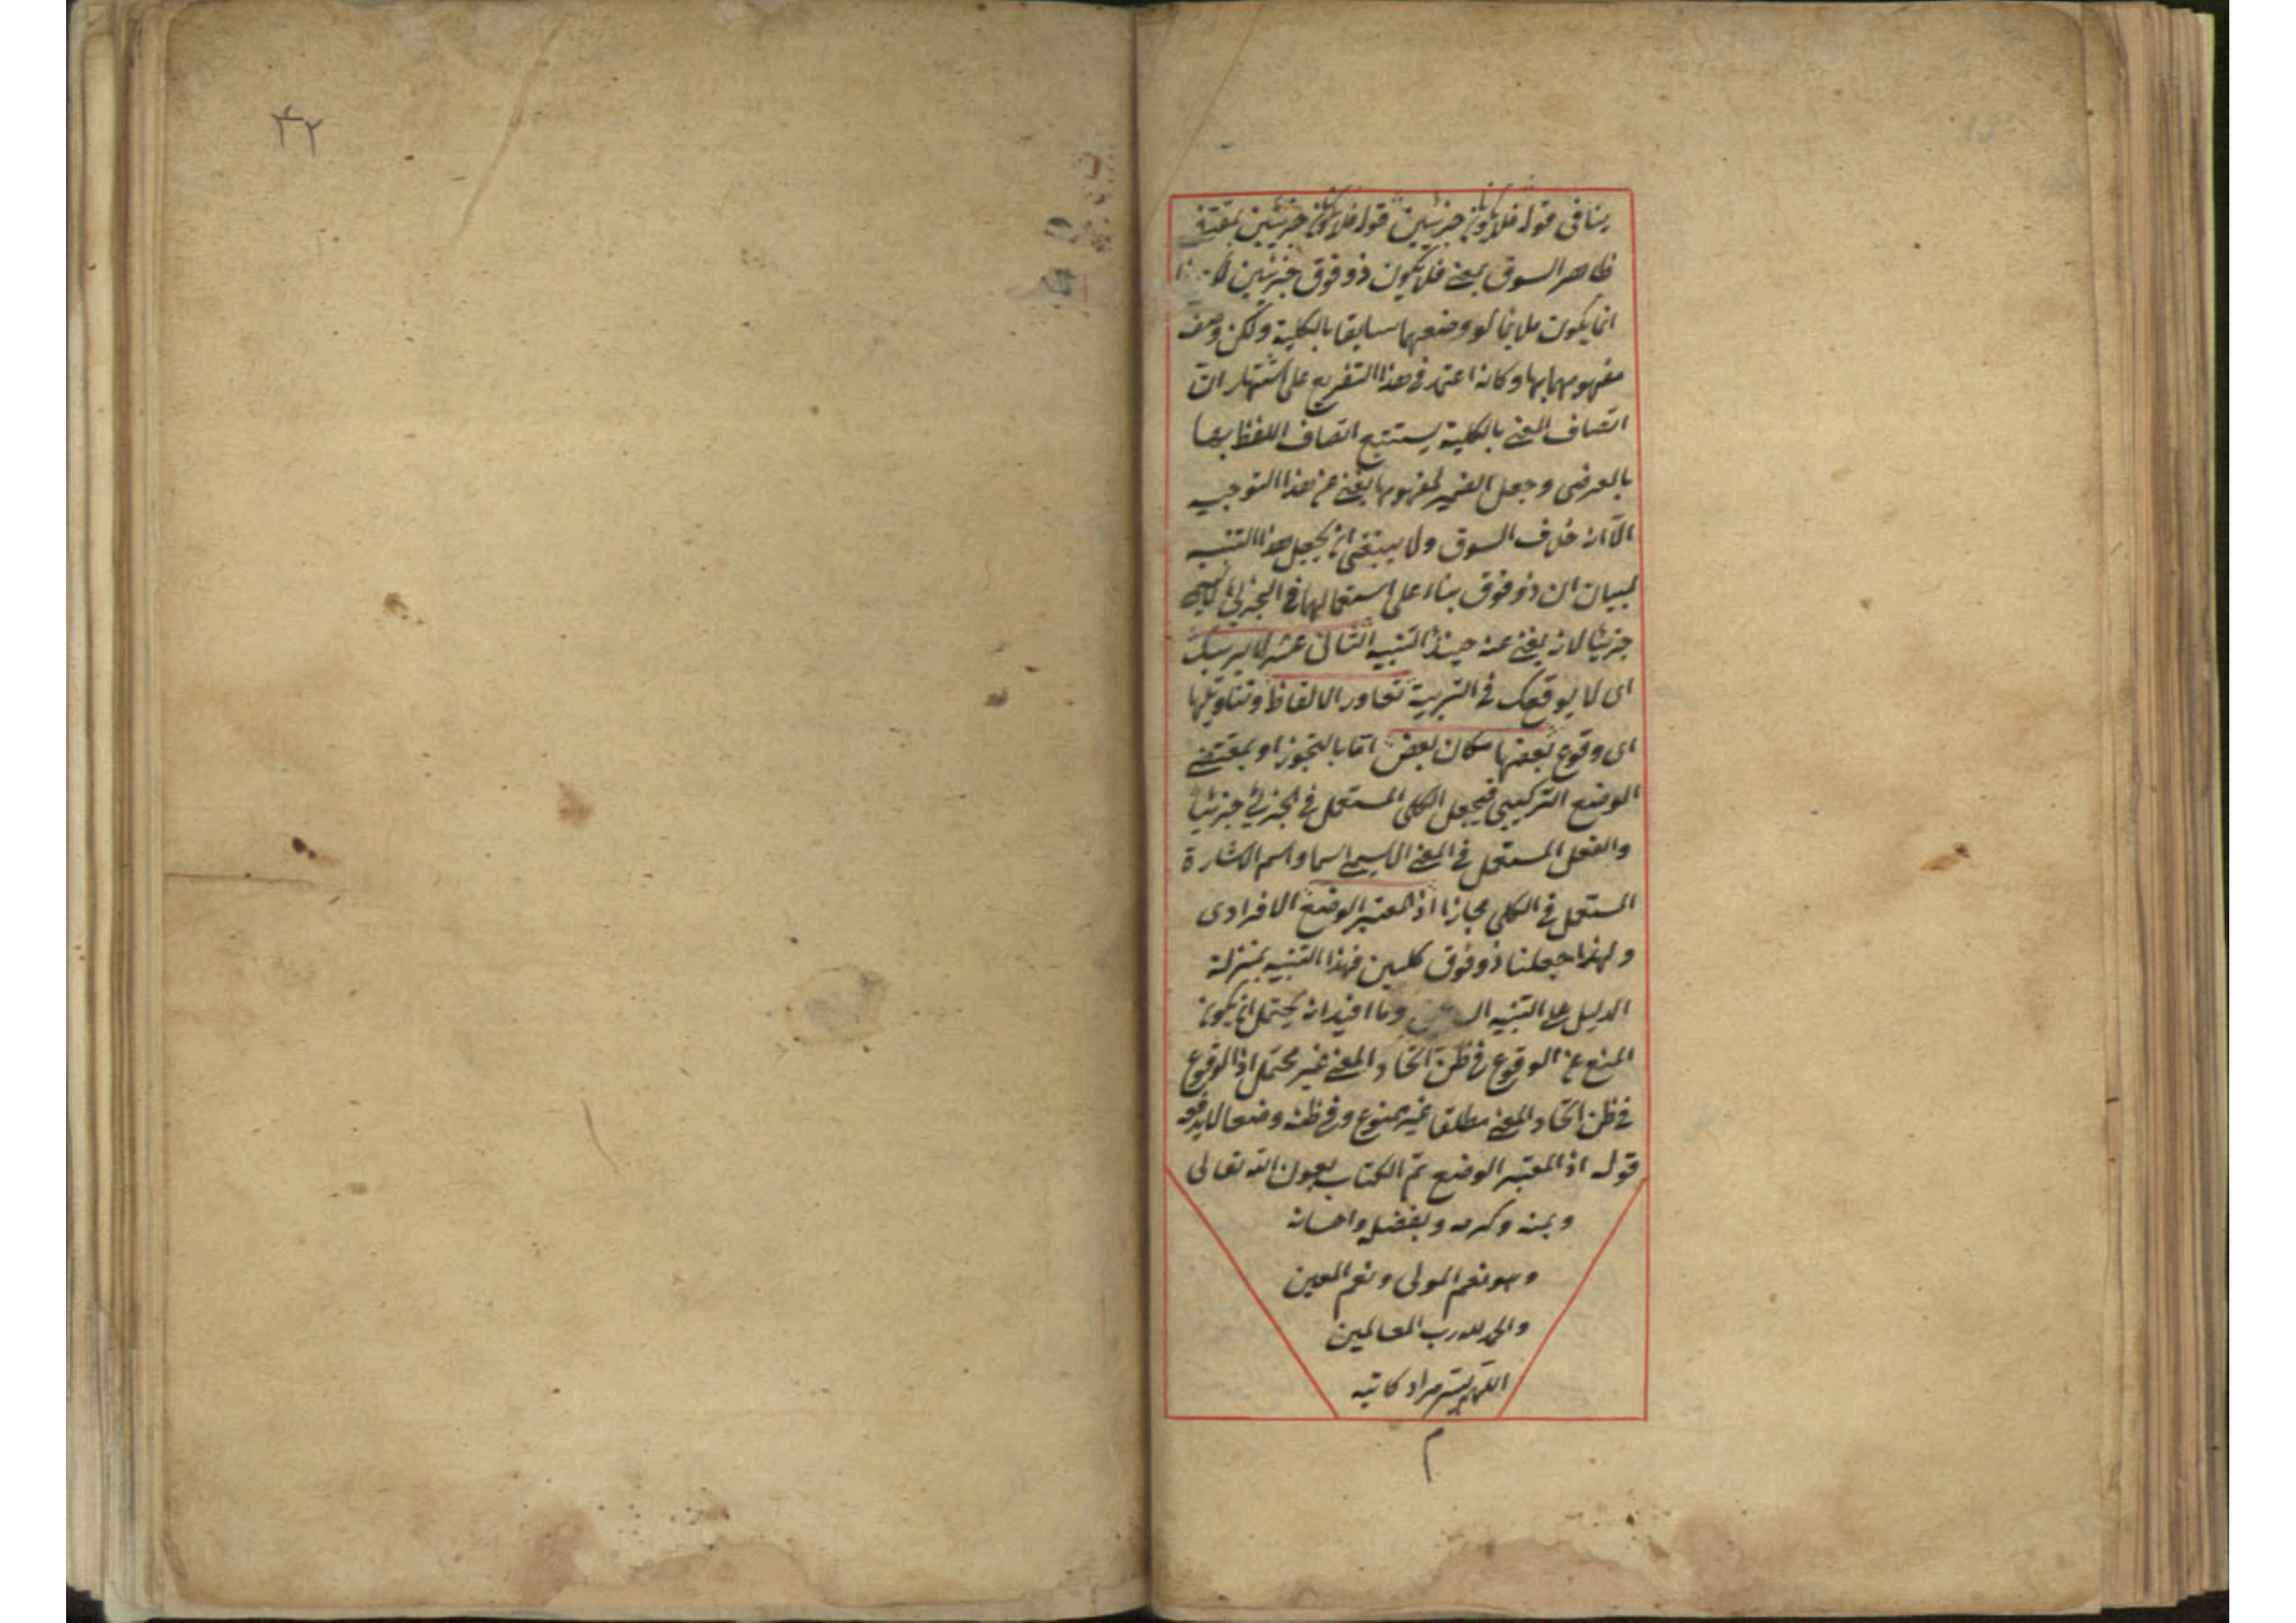 ينافى قوله فلا يكونان جزئيين قوله فلا يكونان جزئيين بمقتضى
ظاهر السوق بمعنى فلا يكون ذو وفوق جزئيين
انما يكون ملايما لو وضعهما سابقا بالكلية ولكن وصف
مفهومهما بها وكانه اعتمد فى هذا التفريع على اشتهار ان
اتصاف المعنى بالكلية يستتبع اتصاف اللفظ بها
بالعرض وجعل الضمير لمفهومها يغنى عن هذا التوجيه
الا انه خلاف السوق ولا ينبغى ان يجعل هذا التنبيه
لبيان ان ذو وفوق بناء على استعمالهما فى الجزئى
جزئيا لانه يغنى عنه حينئذ التنبيه الثانى عشر لا يريبك
اى لا يوقعك فى الريبة تعاور الالفاظ وتناوبها
اى وقوع بعضها مكان بعض اما بالتجوز او بمقتضى
الوضع التركيبى فيجعل الكلى المستعمل فى الجزئى جزئيا
والفعل المستعمل فى المعنى الاسمى اسما واسم الاشارة
المستعمل فى الكلى مجازا اذ المعتبر الوضع الافرادى
ولهذا جعلنا ذو وفوق كليين فهذا التنبيه بمنزلة
الدليل على التنبيه وما افيد انه يحتمل ان يكون
المنع عن الوقوع فى ظن اتحاد المعنى غير محتمل اذ الوقوع
فى ظن اتحاد المعنى مطلقا غير ممنوع وفى ظنه وضعا لا يدفعه
قوله اذ المعتبر الوضع تم الكتاب بعون الله تعالى
وبمنه وكرمه وبفضله واحسانه
وهو نعم المولى ونعم المعين
والحمد لله رب العالمين
اللهم يسر مراد كاتبه
م
٤٢